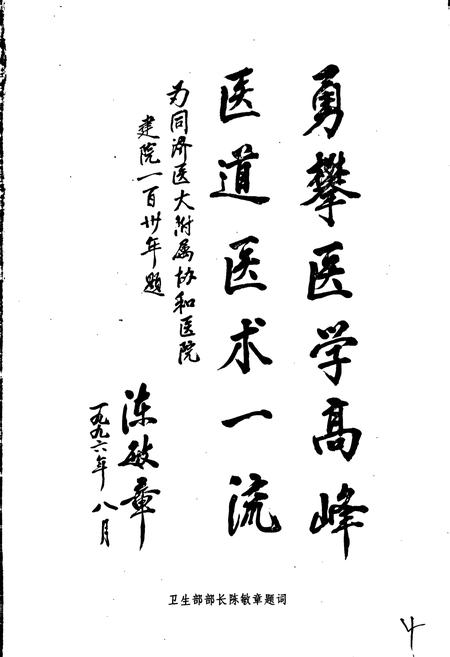 勇攀医学高峰
医道医术一流
为同济医大附属协和医院
建院一百卅年题
陈敏章
一九九六年八月
卫生部部长陈敏章题词